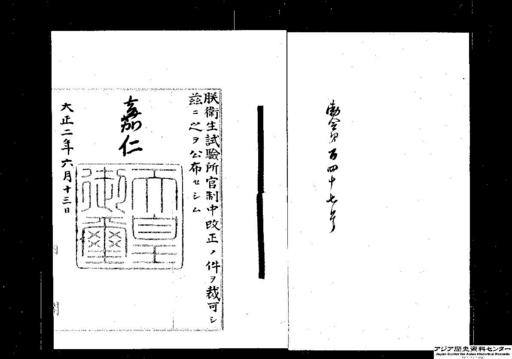 勅令第百四十七号
朕衛生試験所官制中改正ノ件ヲ裁可シ
茲ニ之ヲ公布セシム
嘉仁
天皇御璽
大正二年六月十三日
アジア歴史資料センター
Japan Center for Asian Historical Records